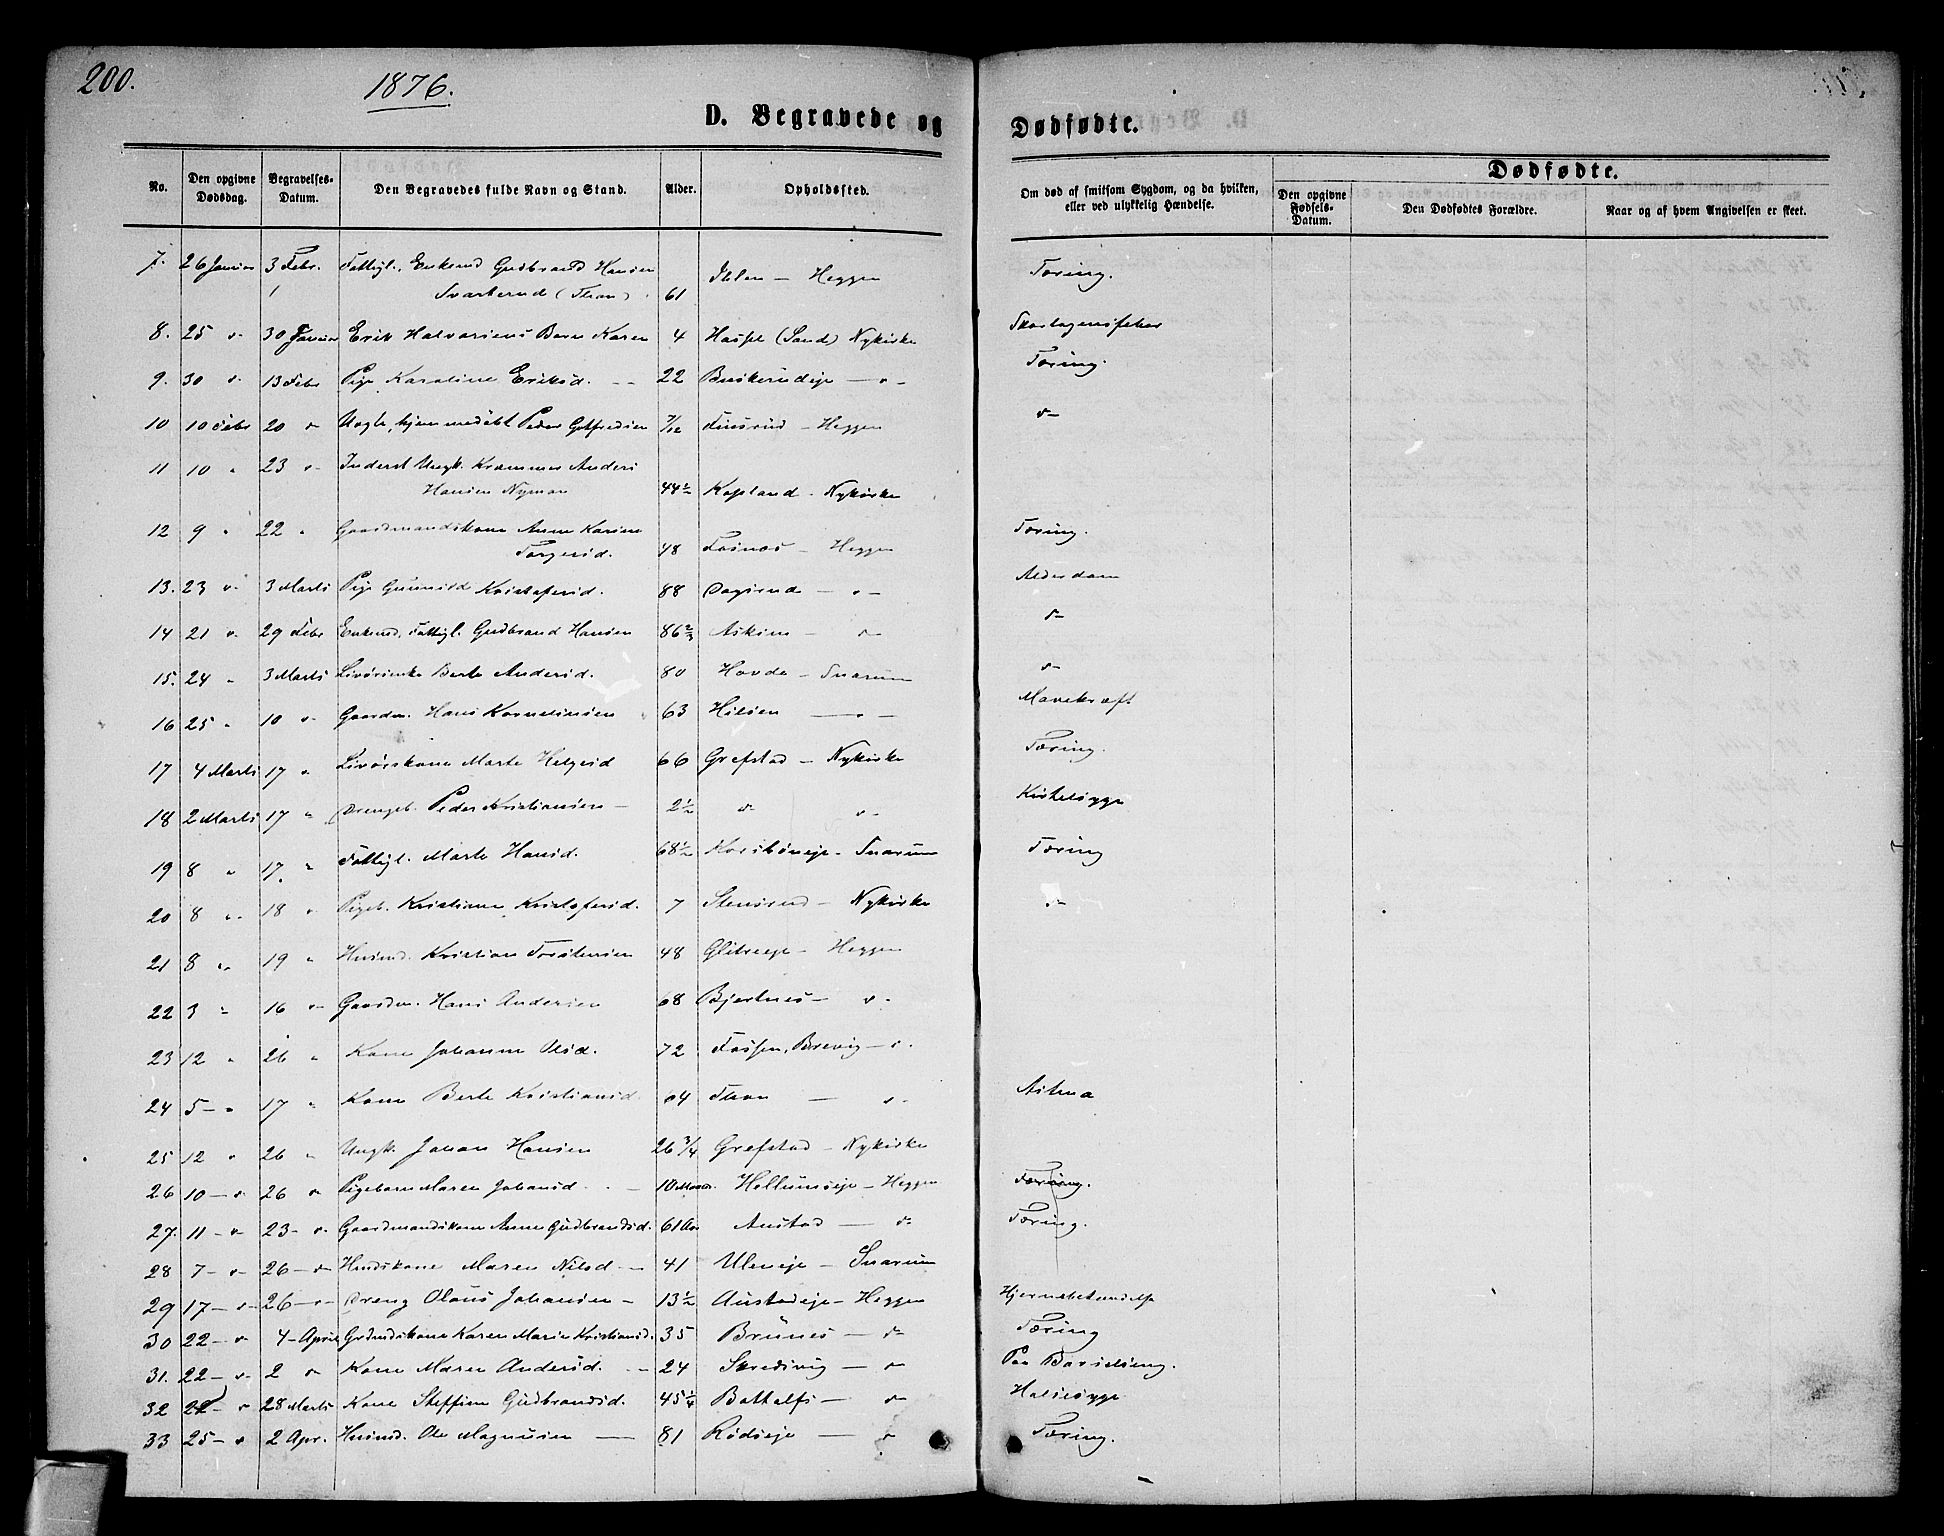 200.
1876.
D. Begravede og Dødfødte.
No. Den opgivne Dødsdag. Begravelses-Datum. Den Begravedes fulde Navn og Stand. Alder. Opholdssted. Om død af smitsom Sygdom, og da hvilken, eller ved ulykkelig Hændelse. Dødfødte.
Den opgivne Fødsels-Datum. Den Dødfødtes Forældre. Naar og af hvem Angivelsen er skeet.
7. 26 Januar 3 Febr. Fattigl. Enkemd Gudbrand Hansen Tæring.
Svarterud (Thon) 61 Iblen — Heggen
8. 25 " 30 Januar Erik Halvorsens Barn Karen 4 Haspl (Sand) Nykirke Skarlagensfeber
9. 30 " 13 Febr Pige Karoline Eriksd. 22 Buskerudeje — " Tæring.
10 10 Febr 20 " hjemmedøbt Peder Gotfredsen 7/12 Fuusrud — Heggen "
11 10 " 23 " Inderst Ungk. Kræmmer Anders
Hansen Nyman 44½ Kopland — Nykirke
12 9 " 22 " Gaardmandskone Anne Karine Tæring.
Torgersd. 48 Fosnæs — Heggen
13. 23 " 3 Marts Pige Gunnild Kristofersd. 88 Dagsrud — " Alderdom
14 21 " 29 Febr Enkemd. Fattigl. Gudbrand Hansen 86 2/3 Askim — " "
15. 24 " 3 Marts Livørenke Berte Andersd. 80 Hovde — Snarum "
16 25 " 10 " Gaardm. Hans Kornelinsen 63 Hilsen — " Mavekræft
17 4 Marts 17 " Livørskone Marte Helgesd 66 Grefstad — Nykirke Tæring.
18 2 Marts 17 " Drengeb. Peder Kristiansen 2½ " " Kirtelsyge
19 8 " 17 " Fattigl. Marte Hansd. 68½ Korsbøneje — Snarum Tæring
20 8 " 18 " Pigeb. Kristiane Kristofersd. 7 Stensrud — Nykirke "
21 8 " 19 " Husmd. Kristian Torstensen 48 Glitreeje — Heggen
22 3 " 16 " Gaardm. Hans Andersen 68 Bjertnes — "
23 12 " 26 " Kone Johanne Olsd. 72 Fossen, Brevig — "
24 5 — " 17 " Kone Berte Kristiansd. 64 Thon — " Astma
25 12 " 26 " Ungk. Johan Hansen 26 3/4 Grefstad — Nykirke
26 10 — " 26 " Pigebarn Maren Johansd. 10 Maan. Hellumseje — Heggen Tæring.
27. 11 — " 23 — " Gaardmandskone Anne Gudbrandsd. 61 Aar Austad — " Tæring.
28 7 — " 26 — " Husdskone Maren Nilsd — 41 Uleneje — Snarum
29 17 — " 26 — " Dreng Olaus Johansen — 13½ Austadeje — Heggen Hjernebetændelse
30 22 — " 4 — April Grdmdskone Karen Marie Kristiansd. 35 Brünes — " Tæring
31. 22 — " 2 " Kone Maren Andersd. — 24 Skredsvig — " Paa Barselseng.
32 22 — " 28 Marts Kone Steffine Gudbrandsd. 45¼ Battalfs — " Halssyge
33 25 — " 2 Apr. Husmd. Ole Magnussen — 81 Rødseje — " Tæring.